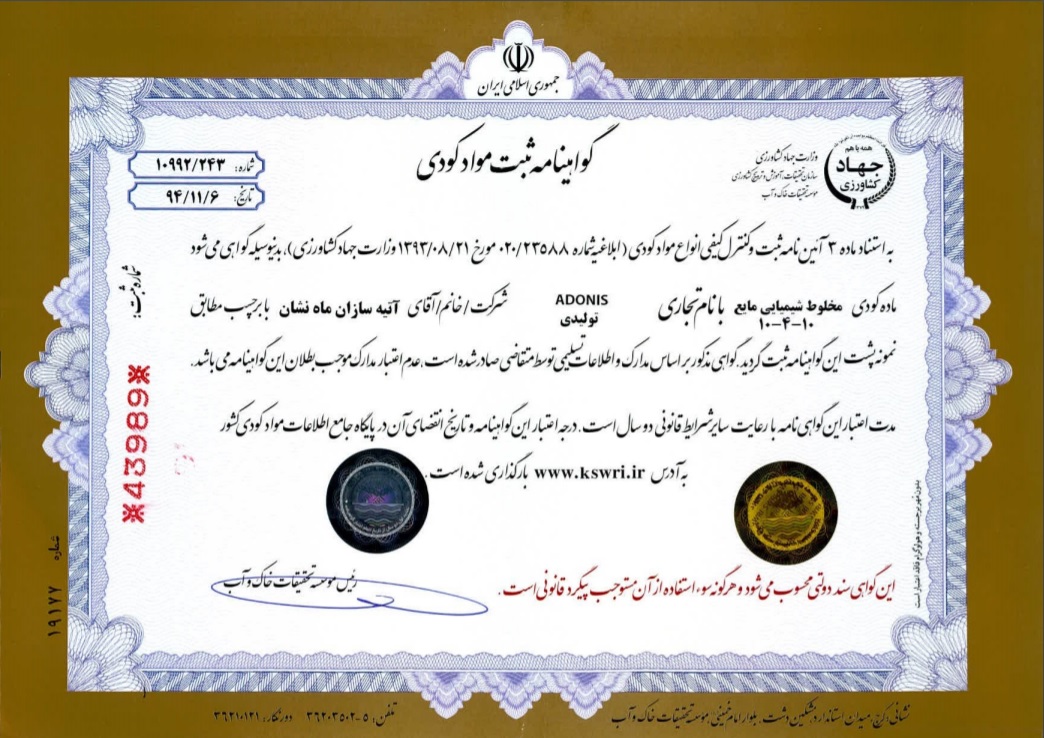 جمهوری اسلامی ایران
همه با هم
جهاد
کشاورزی
وزارت جهاد کشاورزی
سازمان تحقیقات، آموزش و ترویج کشاورزی
موسسه تحقیقات خاک و آب
گواهینامه ثبت مواد کودی
شماره: ۱۰۹۹۲/۲۴۳
تاریخ: ۹۴/۱۱/۶
به استناد ماده ۳ آئین نامه ثبت و کنترل کیفی انواع مواد کودی (ابلاغیه شماره ۰۲۰/۲۳۵۸۸ مورخ ۱۳۹۳/۰۸/۲۱ وزارت جهاد کشاورزی)، بدینوسیله گواهی می شود
ماده کودی مخلوط شیمیایی مایع ۱۰-۴-۱۰ با نام تجاری ADONIS تولیدی شرکت/خانم/آقای آتیه سازان ماه نشان با برچسب مطابق
نمونه پشت این گواهینامه ثبت گردید. گواهی مذکور بر اساس مدارک و اطلاعات تسلیمی توسط متقاضی صادر شده است. عدم اعتبار مدارک موجب بطلان این گواهینامه می باشد.
مدت اعتبار این گواهی نامه با رعایت سایر شرایط قانونی دو سال است. درجه اعتبار این گواهینامه و تاریخ انقضای آن در پایگاه جامع اطلاعات مواد کودی کشور
به آدرس www.kswri.ir بارگذاری شده است.
شماره ثبت:
※43989※
رئیس موسسه تحقیقات خاک و آب
این گواهی سند دولتی محسوب می شود و هرگونه سوء استفاده از آن مستوجب پیگرد قانونی است.
بدون مهر برجسته و هولوگرام فاقد اعتبار است
شماره ۱۹۱۷۷
نشانی: کرج، میدان استاندارد، مشکین دشت، بلوار امام خمینی، موسسه تحقیقات خاک و آب
تلفن: ۵-۳۶۲۰۳۵۰۲ دورنگار: ۳۶۲۱۰۱۲۱